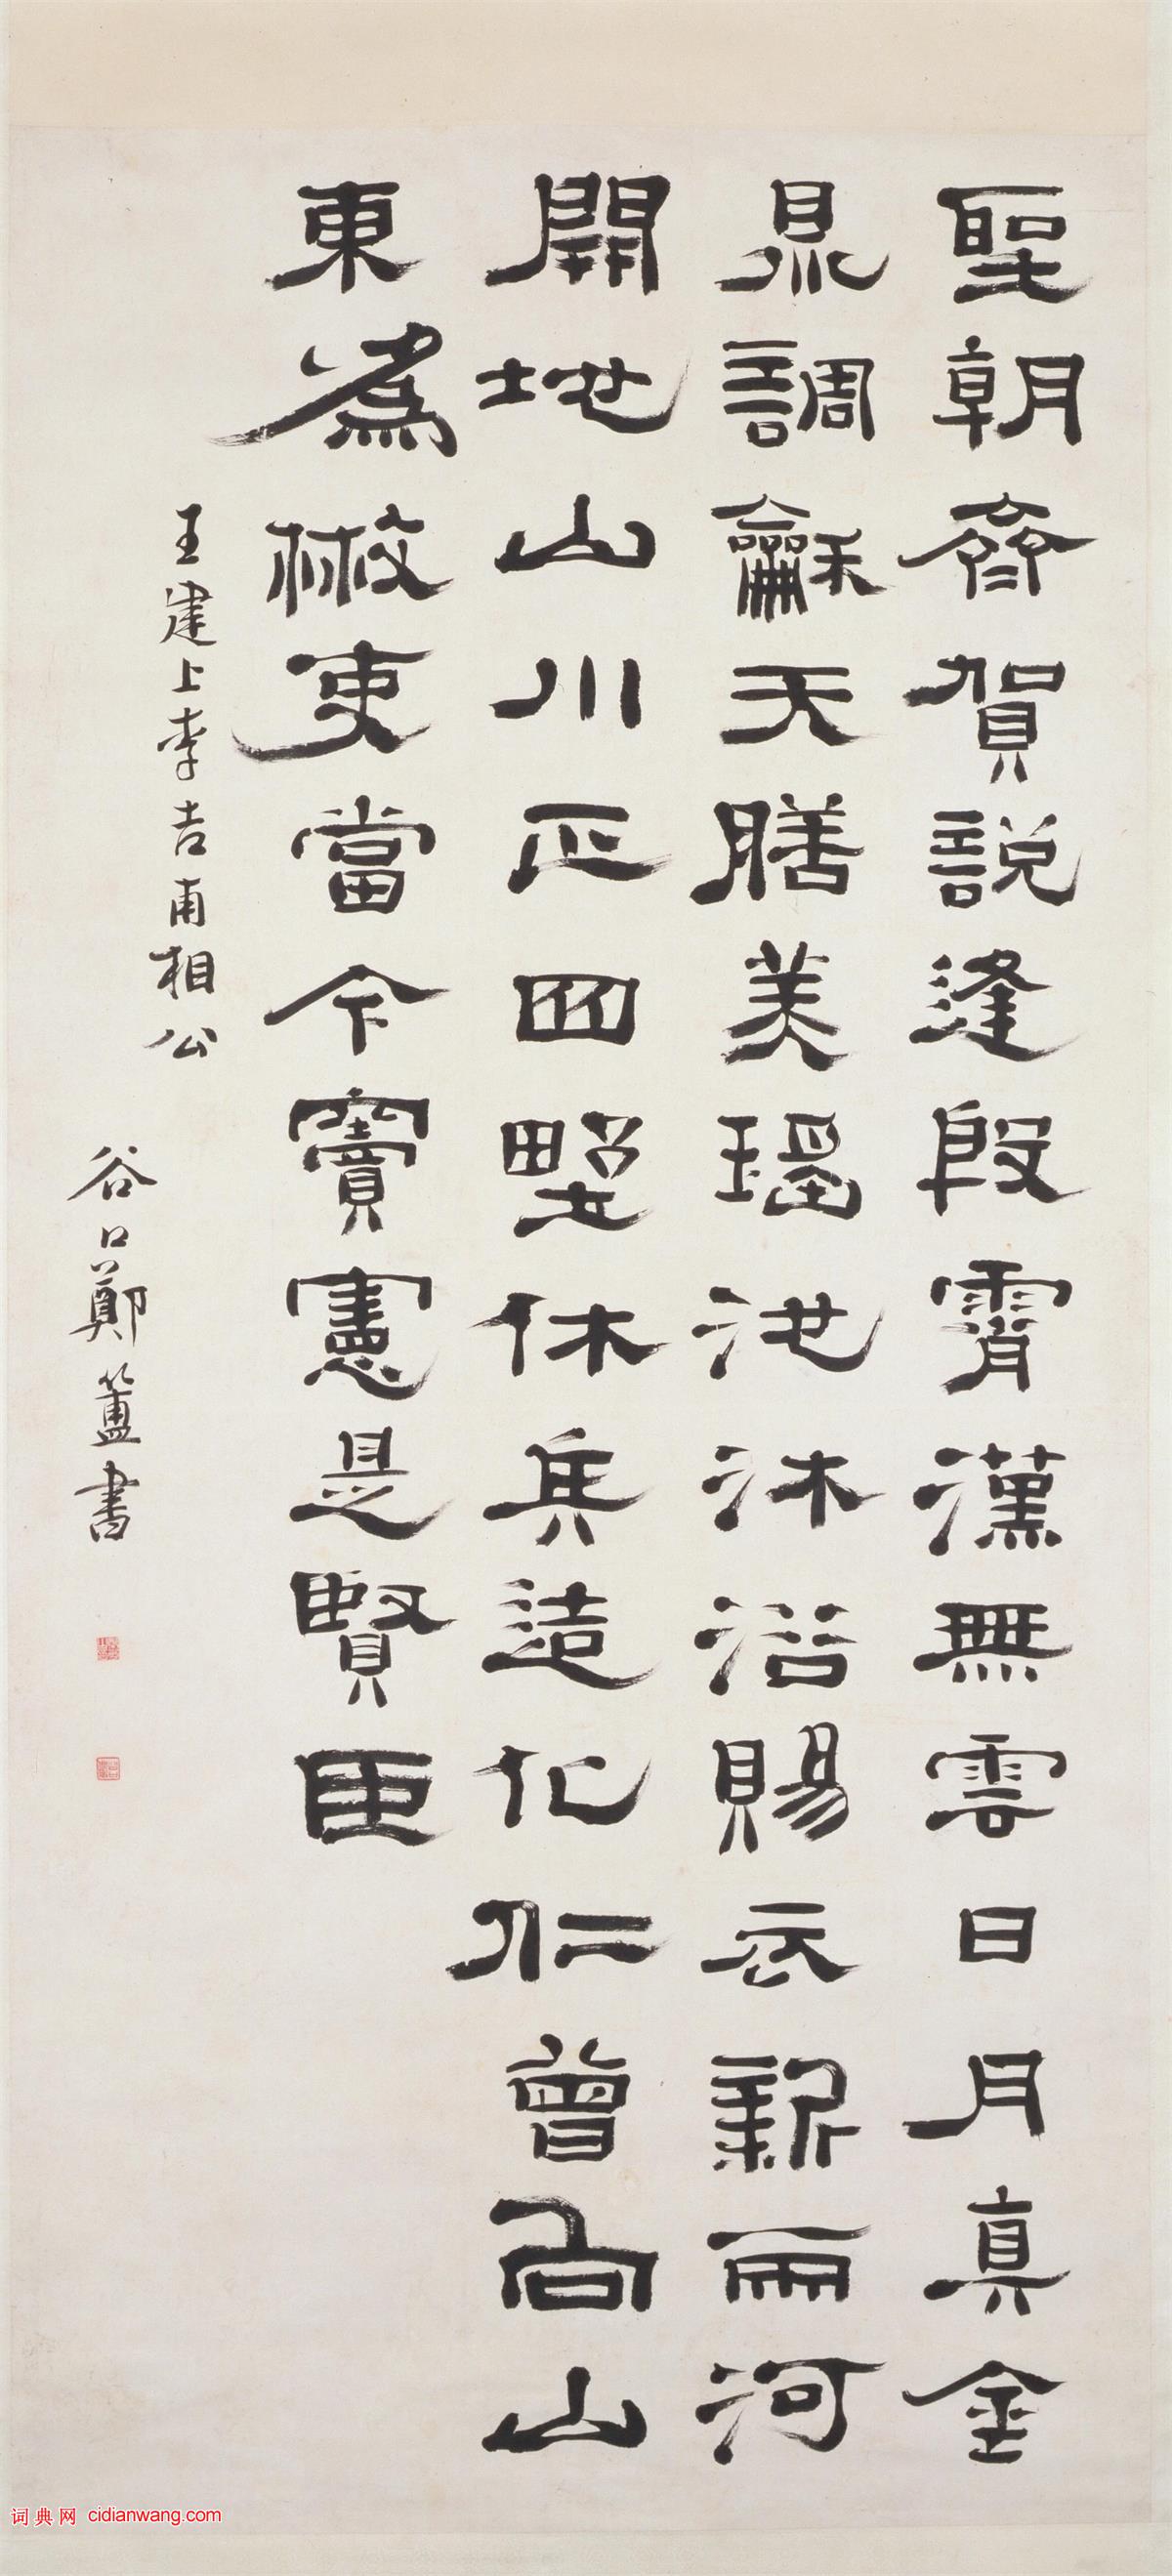 聖朝齊賀說逢殷霄漢無雲日月真金
鼎調龢天膳美瑤池沐浴賜衣新兩河
開地山川正四野休兵造化仁曾向山
東爲散吏當今竇憲是賢臣
王建上李吉甫相公
谷口鄭簠書
词典网 cidianwang.com